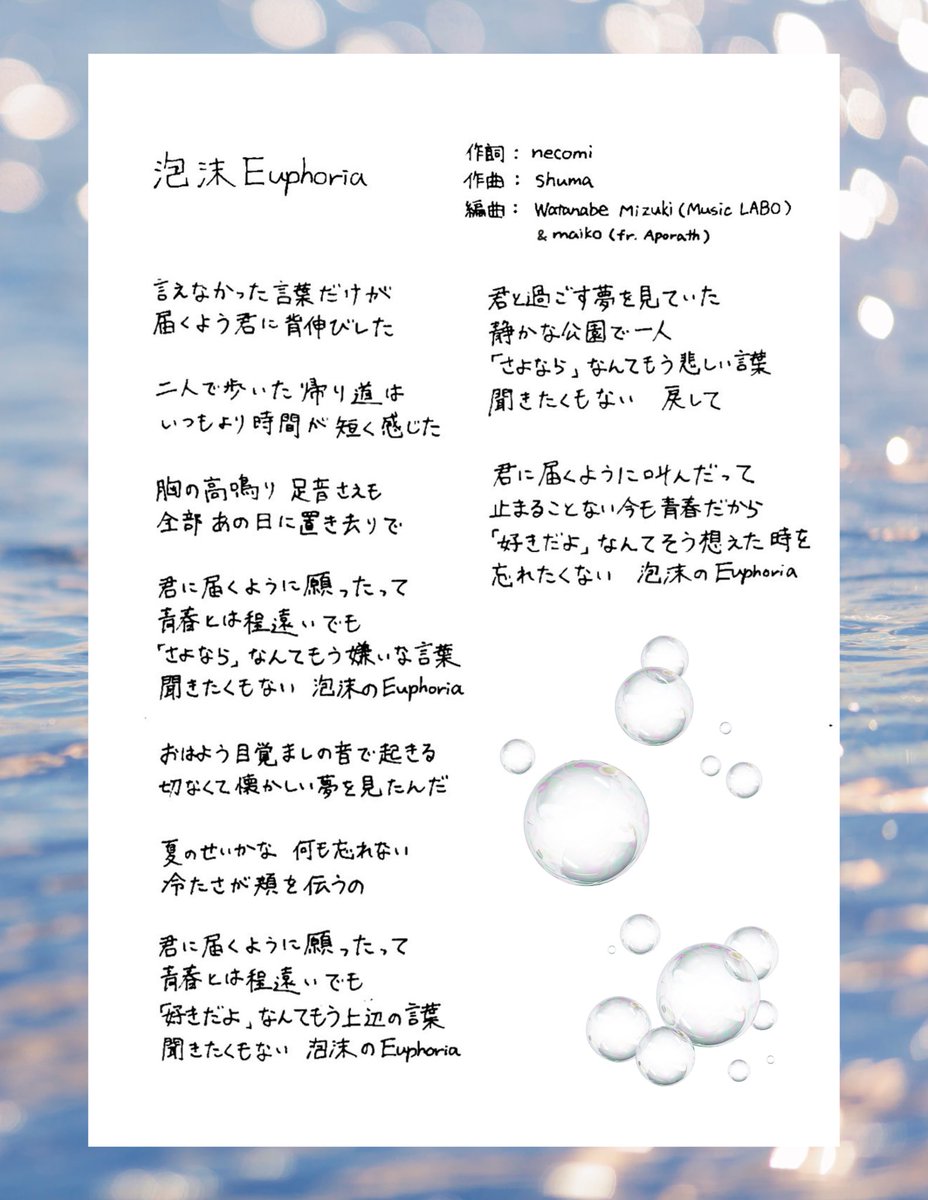 泡沫 Euphoria
作詞： necomi
作曲： shuma
編曲： Watanabe Mizuki (Music LABO)
& maiko (fr. Aporath)
言えなかった言葉だけが
届くよう君に背伸びした
二人で歩いた帰り道は
いつもより時間が短く感じた
胸の高鳴り 足音さえも
全部 あの日に置き去りで
君に届くように願ったって
青春とは程遠いでも
「さよなら」なんてもう嫌いな言葉
聞きたくもない 泡沫のEuphoria
おはよう目覚ましの音で起きる
切なくて懐かしい夢を見たんだ
夏のせいかな 何も忘れない
冷たさが頬を伝うの
君に届くように願ったって
青春とは程遠いでも
「好きだよ」なんてもう上辺の言葉
聞きたくもない 泡沫のEuphoria
君と過ごす夢を見ていた
静かな公園で一人
「さよなら」なんてもう悲しい言葉
聞きたくもない 戻して
君に届くように叫んだって
止まることない今も青春だから
「好きだよ」なんてそう想えた時を
忘れたくない 泡沫のEuphoria